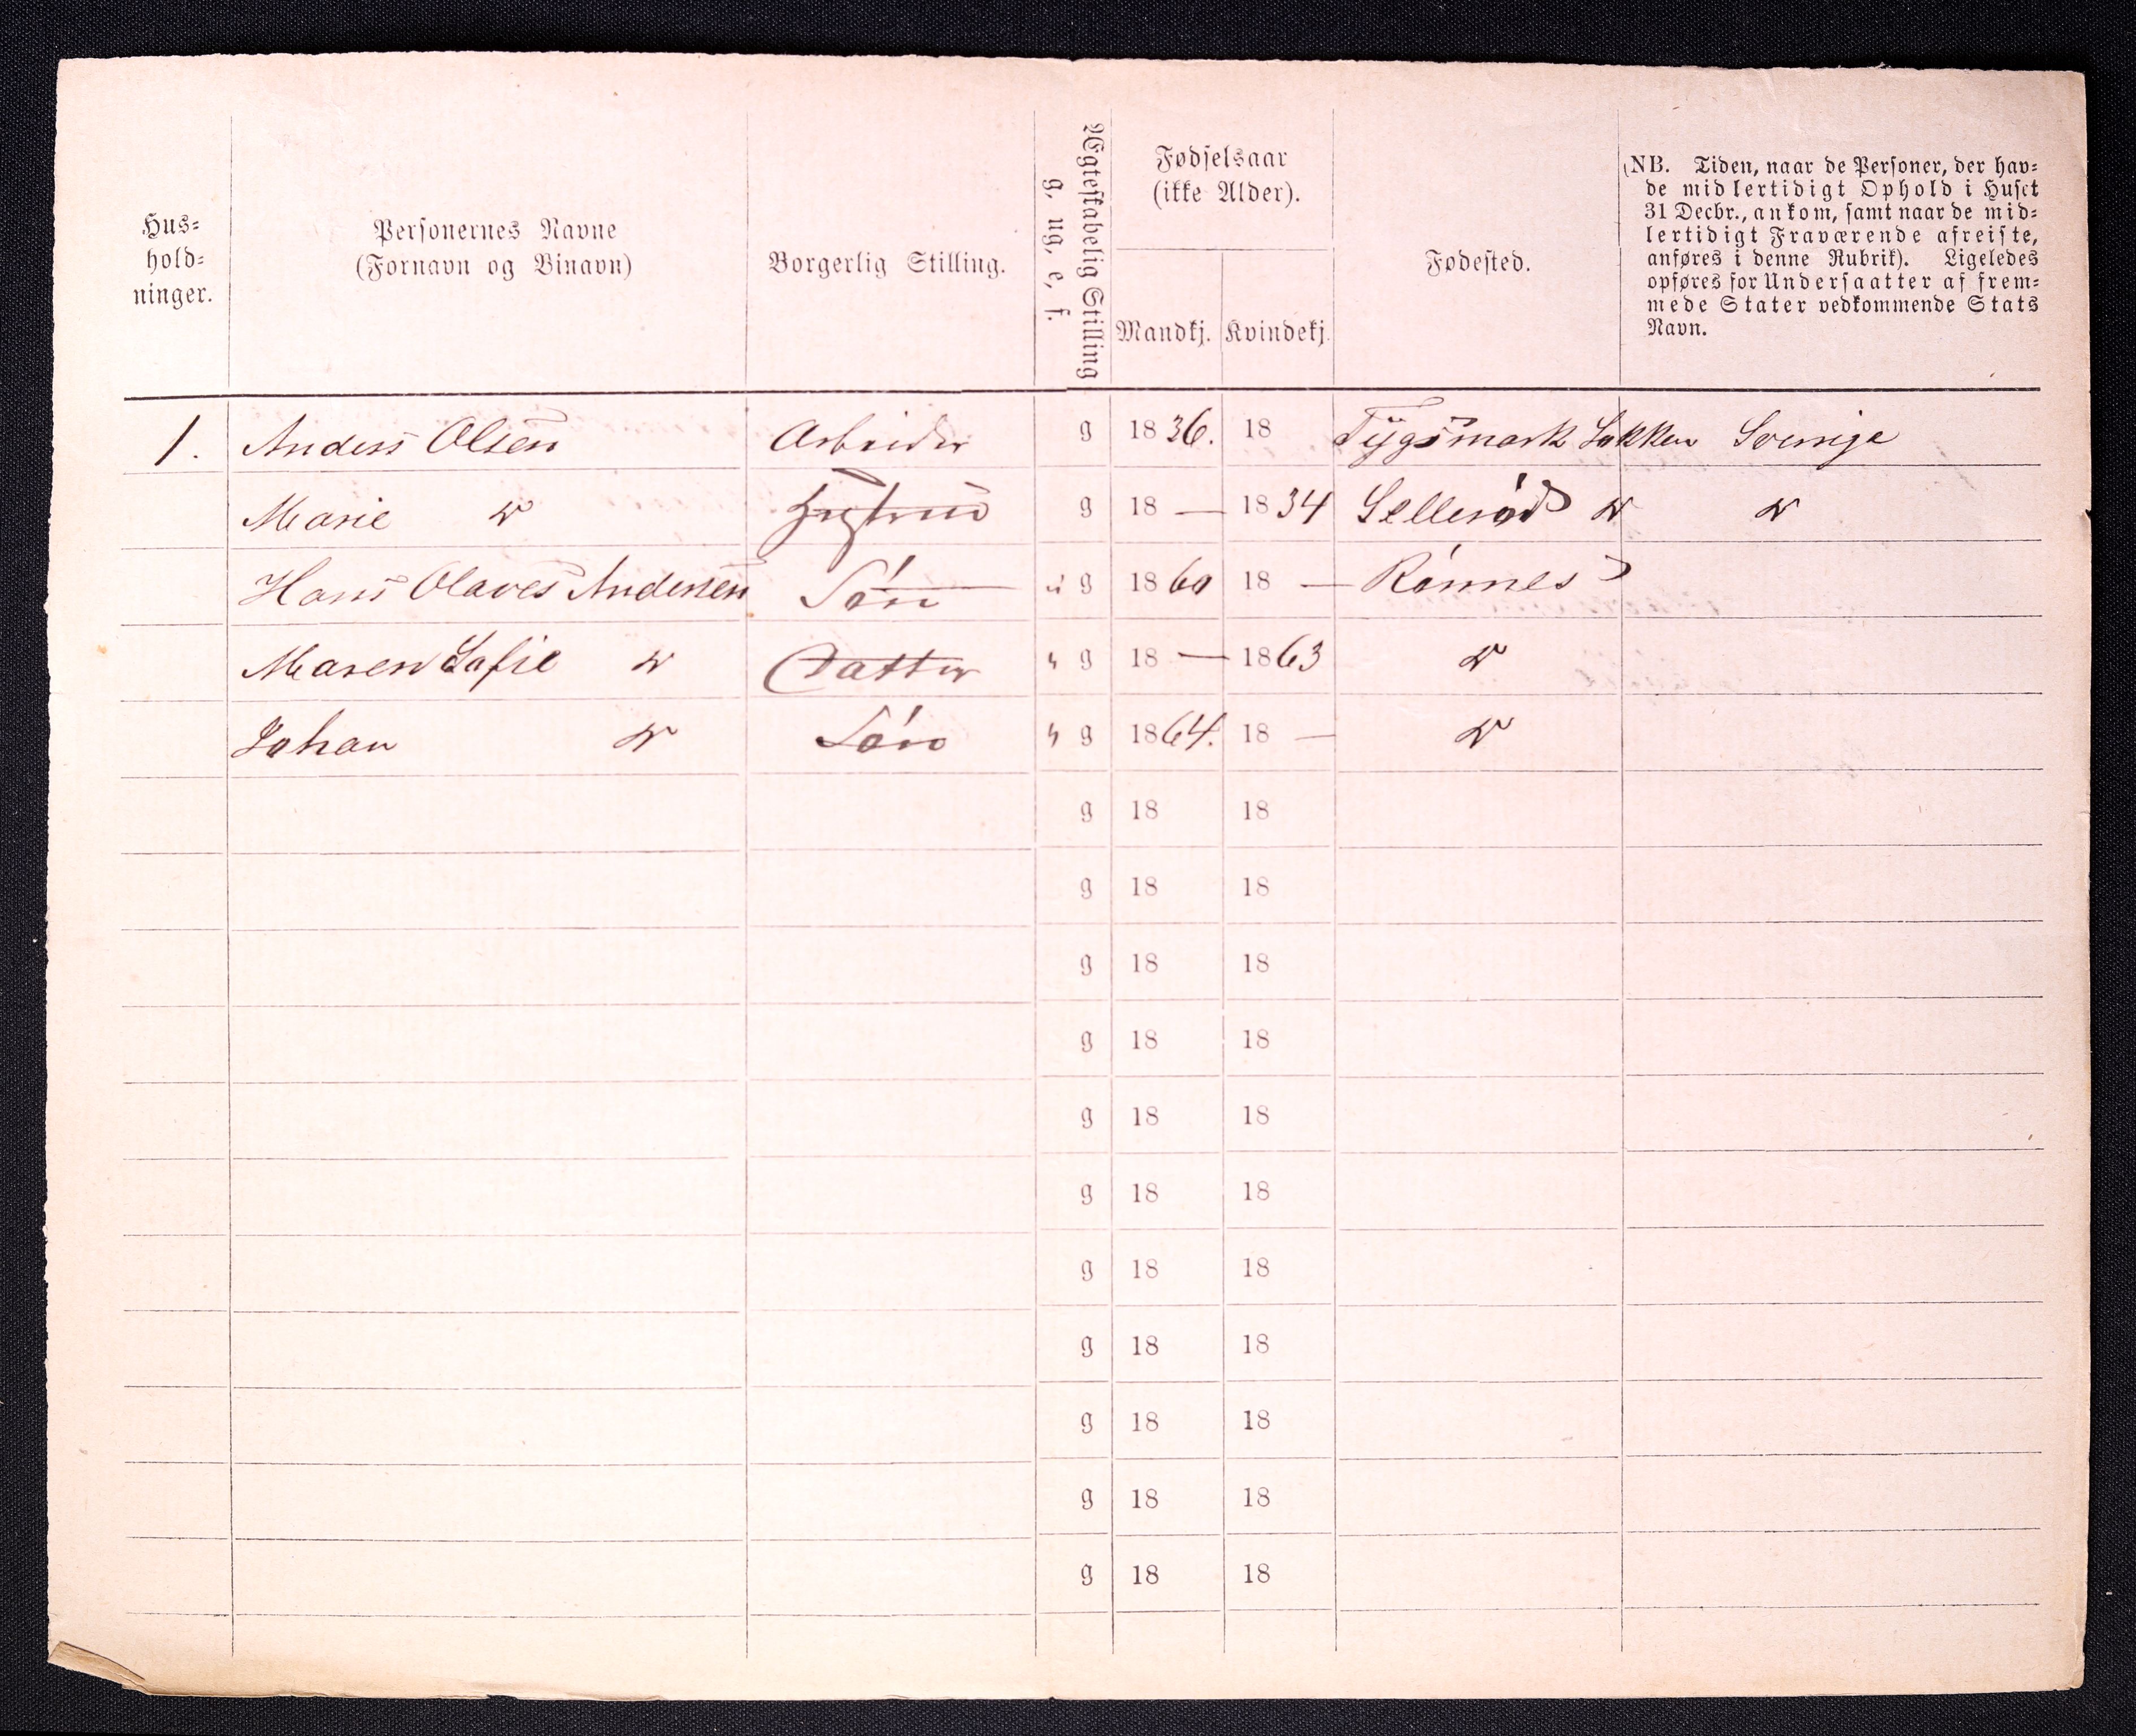 Hus=
hold=
ninger.
Personernes Navne
(Fornavn og Binavn)
Borgerlig Stilling.
Ægteskabelig Stilling
g, ug, e, f.
Fødselsaar
(ikke Alder).
Mandkj. Kvindekj.
Fødested.
(NB. Tiden, naar de Personer, der hav=
de midlertidigt Ophold i Huset
31 Decbr., ankom, samt naar de mid=
lertidigt Fraværende afreiste,
anføres i denne Rubrik). Ligeledes
opføres for Undersaatter af frem=
mede Stater vedkommende Stats
Navn.
1. Anders Olsen Arbeider g 1836. 18 Sokken Sverige
Marie do Hustru g 18 — 1834 do do
Hans Olaves Andersen Søn u g 1860 18 — Rönnes
Maren Sofie do Datter " g 18 — 1863 do
Johan do Søn " g 1864. 18 — do
g 18 18
g 18 18
g 18 18
g 18 18
g 18 18
g 18 18
g 18 18
g 18 18
g 18 18
g 18 18
g 18 18